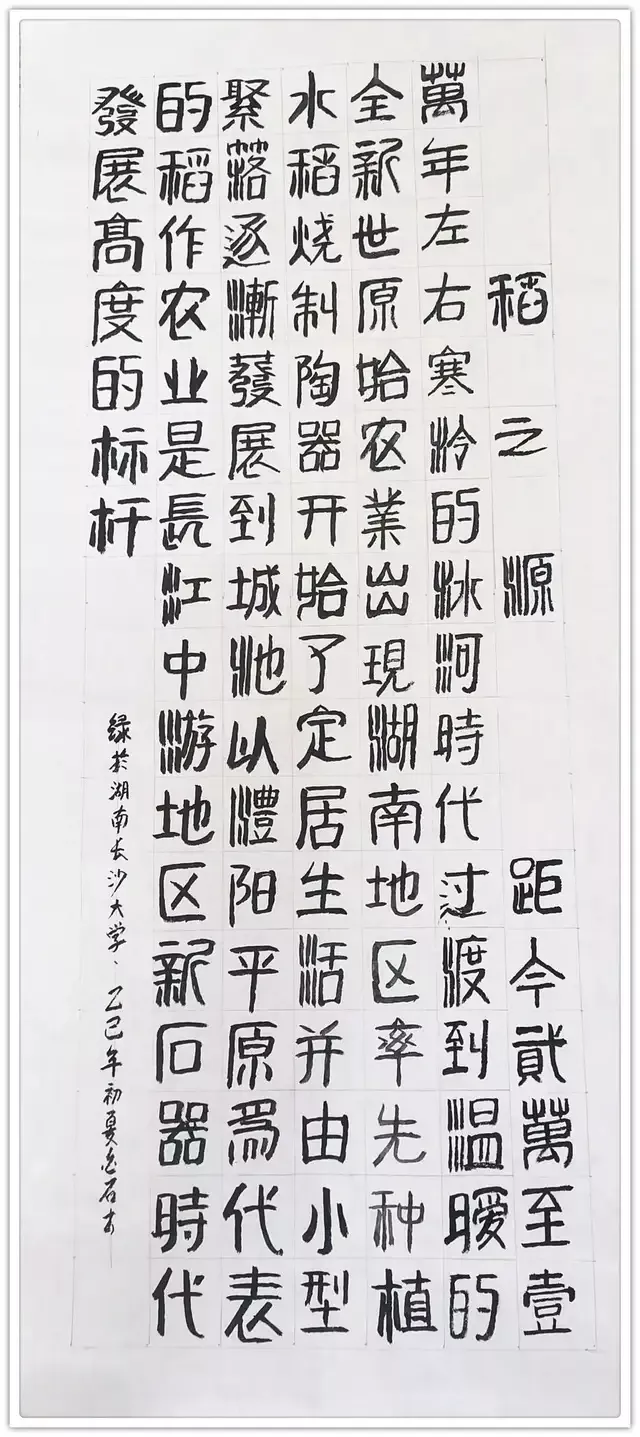 稻之源 距今貳萬至壹
萬年左右寒冷的冰河時代过渡到温暖的
全新世原始农業出現湖南地区率先种植
水稻烧制陶器开始了定居生活并由小型
聚落逐漸發展到城池以澧阳平原爲代表
的稻作农业是長江中游地区新石器時代
發展髙度的标杆
録於湖南长沙大学、乙巳年初夏